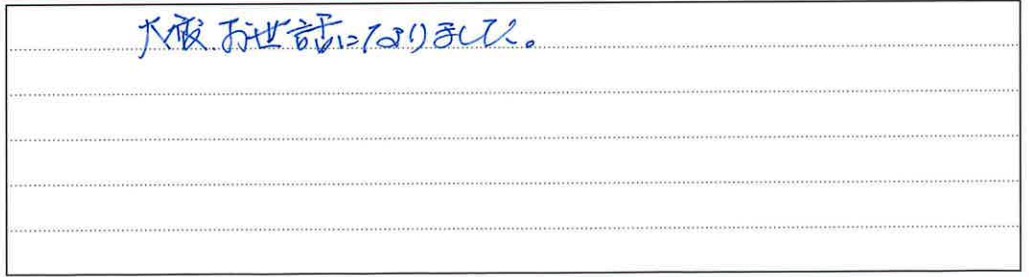 大変お世話になりました。